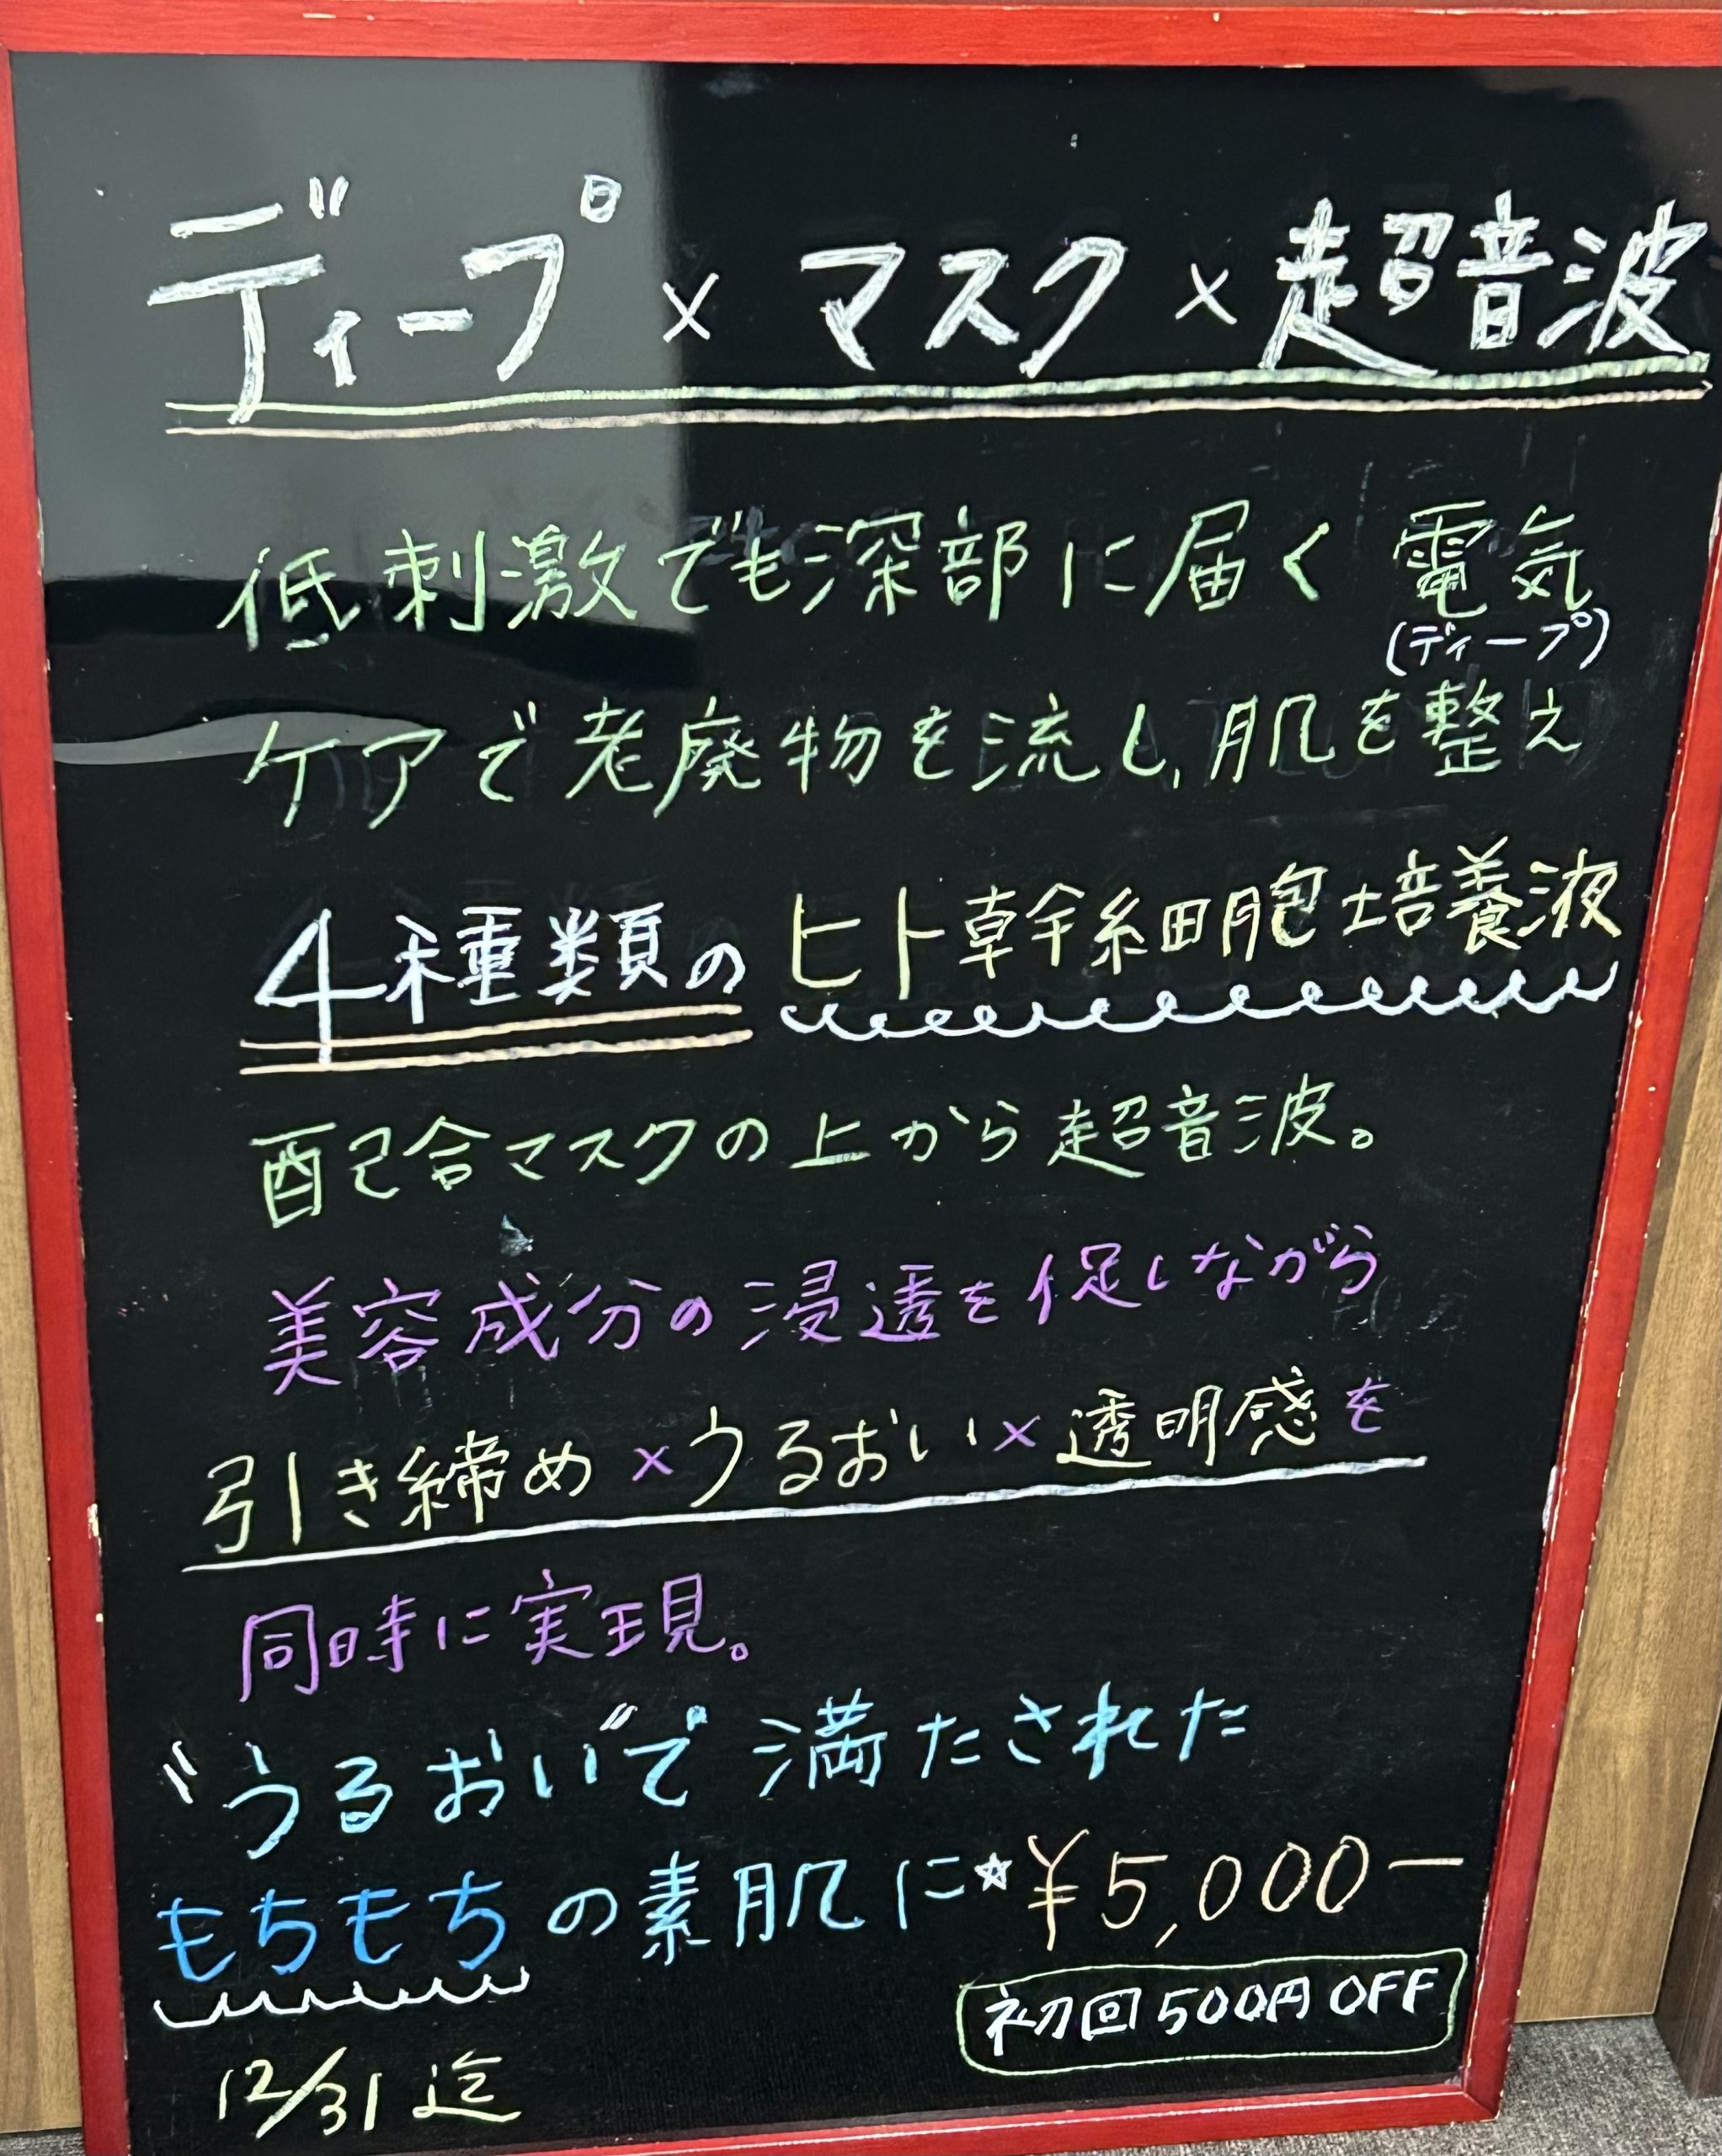 ディープ×マスク×超音波
低刺激でも深部に届く電気
(ディープ)
ケアで老廃物を流し、肌を整え
4種類のヒト幹細胞培養液
配合マスクの上から超音波。
美容成分の浸透を促しながら
引き締め×うるおい×透明感を
同時に実現。
〝うるおい〟で満たされた
もちもちの素肌に☆¥5,000ー
初回500円OFF
12/31迄